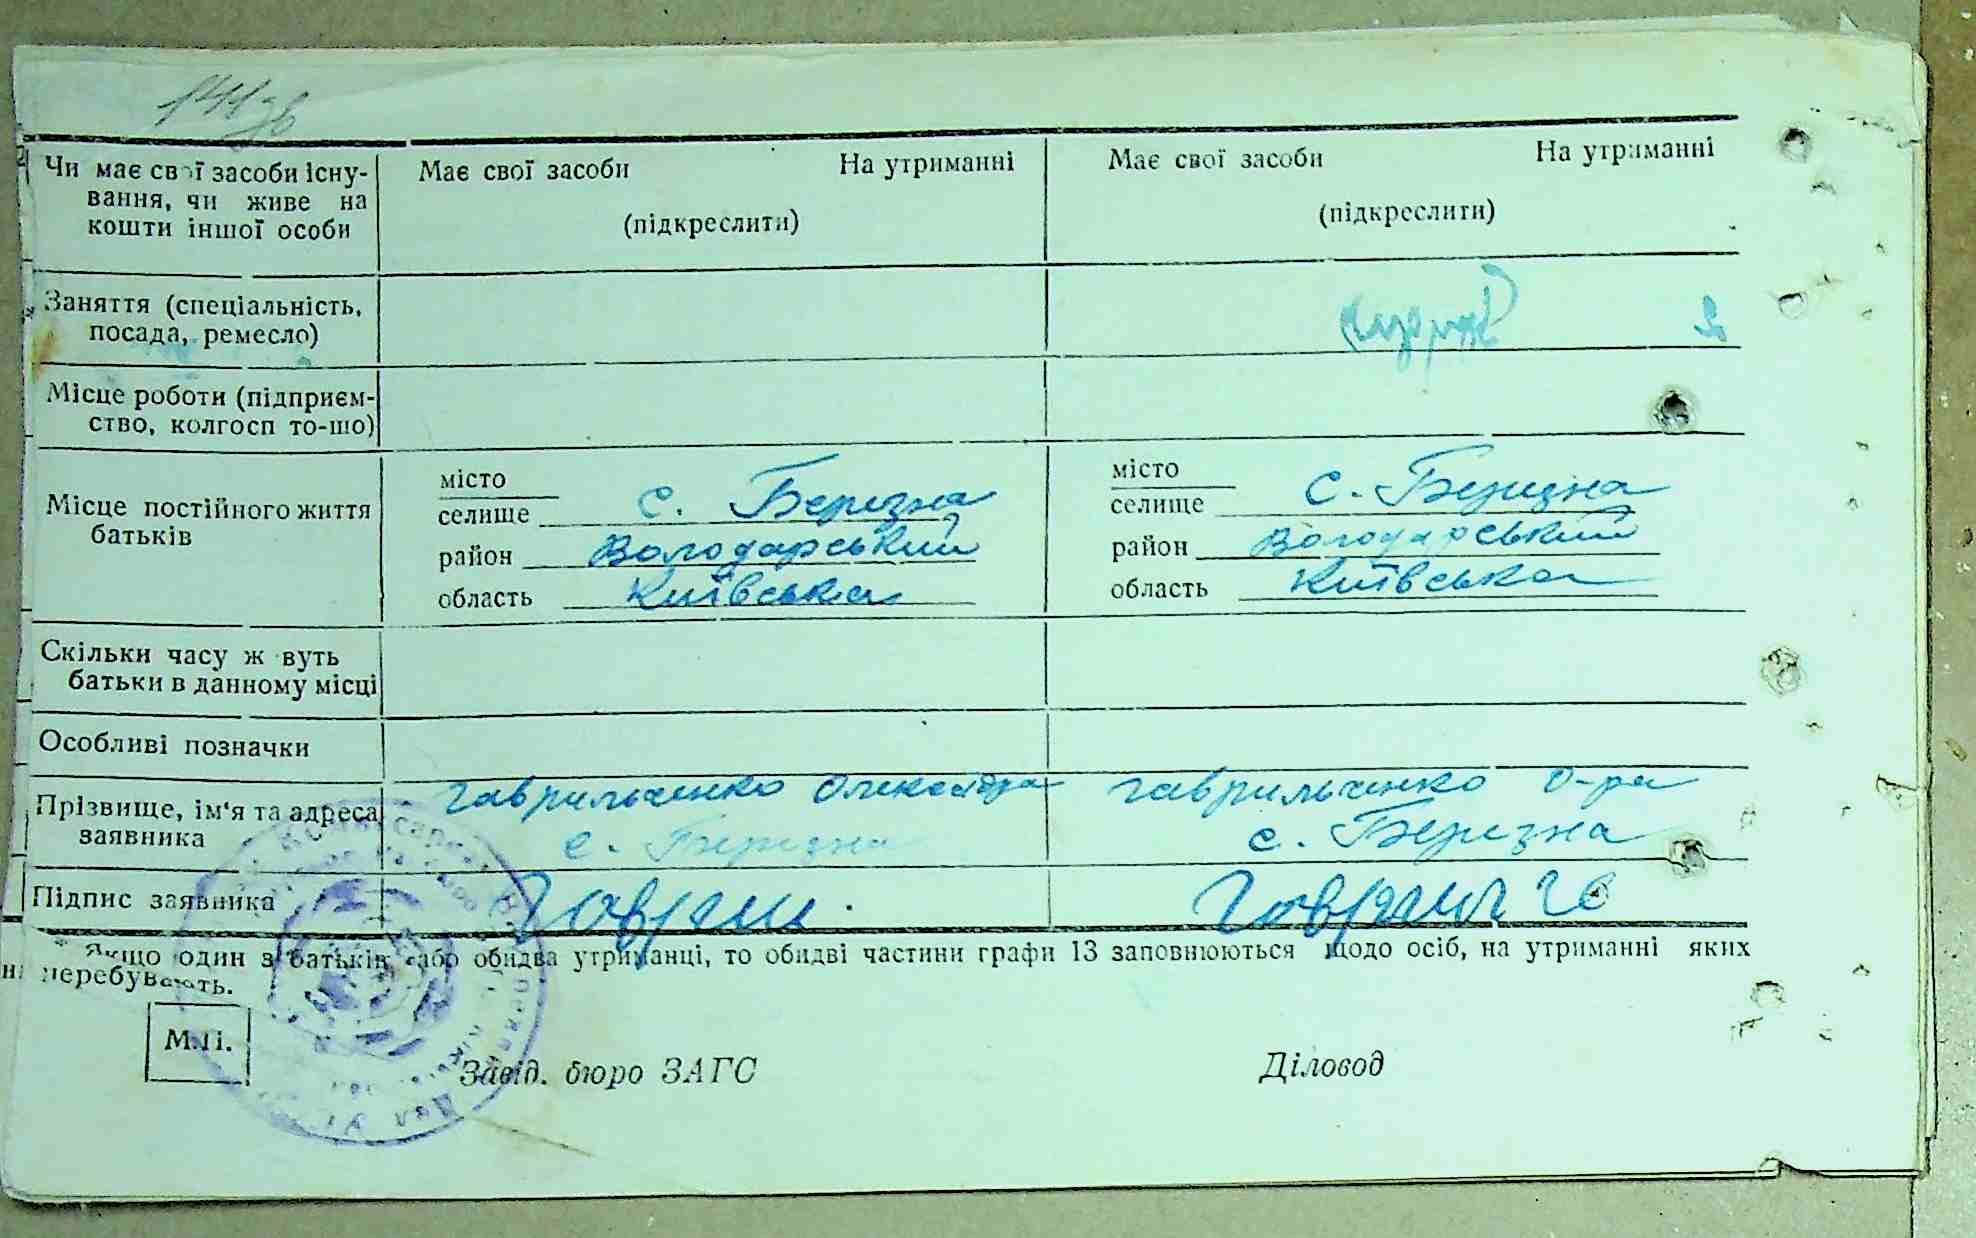 141зв
Чи має свої засоби існу- Має свої засоби На утриманні Має свої засоби На утриманні
вання, чи живе на
кошти іншої особи (підкреслити) (підкреслити)
Заняття (спеціальність,
посада, ремесло)
Місце роботи (підприєм-
ство, колгосп то-що)
місто місто
Місце постійного життя селище с. Березна селище с. Березна
батьків район Володарський район Володарський
область Київська область Київська
Скільки часу ж вуть
батьки в данному місці
Особливі позначки
Прізвище, ім'я та адреса Гаврильченко Олександра Гаврильченко О-ра
заявника с. Березна с. Березна
Підпис заявника
* Якщо один з батьків або обидва утриманці, то обидві частини графи 13 заповнюються щодо осіб, на утриманні яких
перебувають.
М.П.
Завід. бюро ЗАГС Діловод